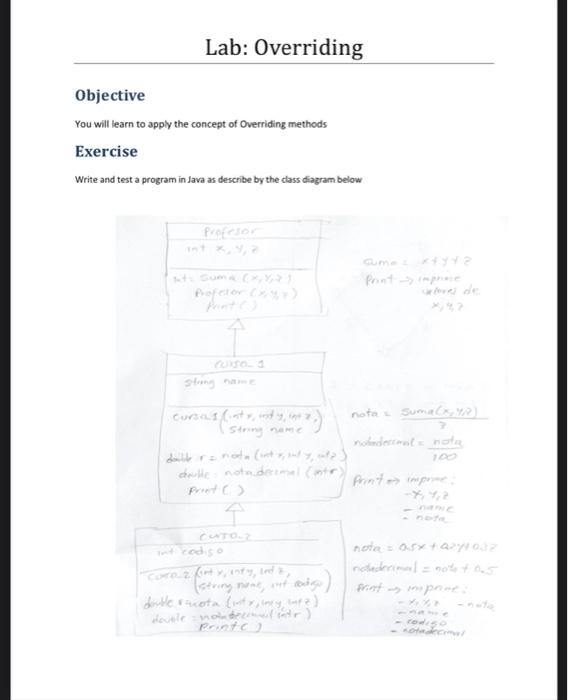 Lab: Overriding
Objective
You will learn to apply the concept of Overriding methods
Exercise
Write and test a program in Java as describe by the class diagram below
Profesor
int x, y, z
int: Suma (x, y, z)
Profesor (x, y, z)
Print ( )
suma = x+y+z
Print → imprime
valores de
x, y, z
curso_1
String name
curso_1 (int x, int y, int z,
String name)
double r = nota (int x, int y, int z)
double: notadecimal (int r)
Print ( )
nota = suma(x, y, z)
3
notadecimal = nota
100
Print → imprime:
- x, y, z
- name
- nota
curso_2
int codigo
curso_2 (int x, int y, int z,
String name, int codigo)
double r = nota (int x, int y, int z)
double = notadecimal (int r)
Print ( )
nota = 0.5x + 0.2y + 0.3z
notadecimal = nota + 0.5
Print → imprime:
- x, y, z - nota
- name
- codigo
- notadecimal